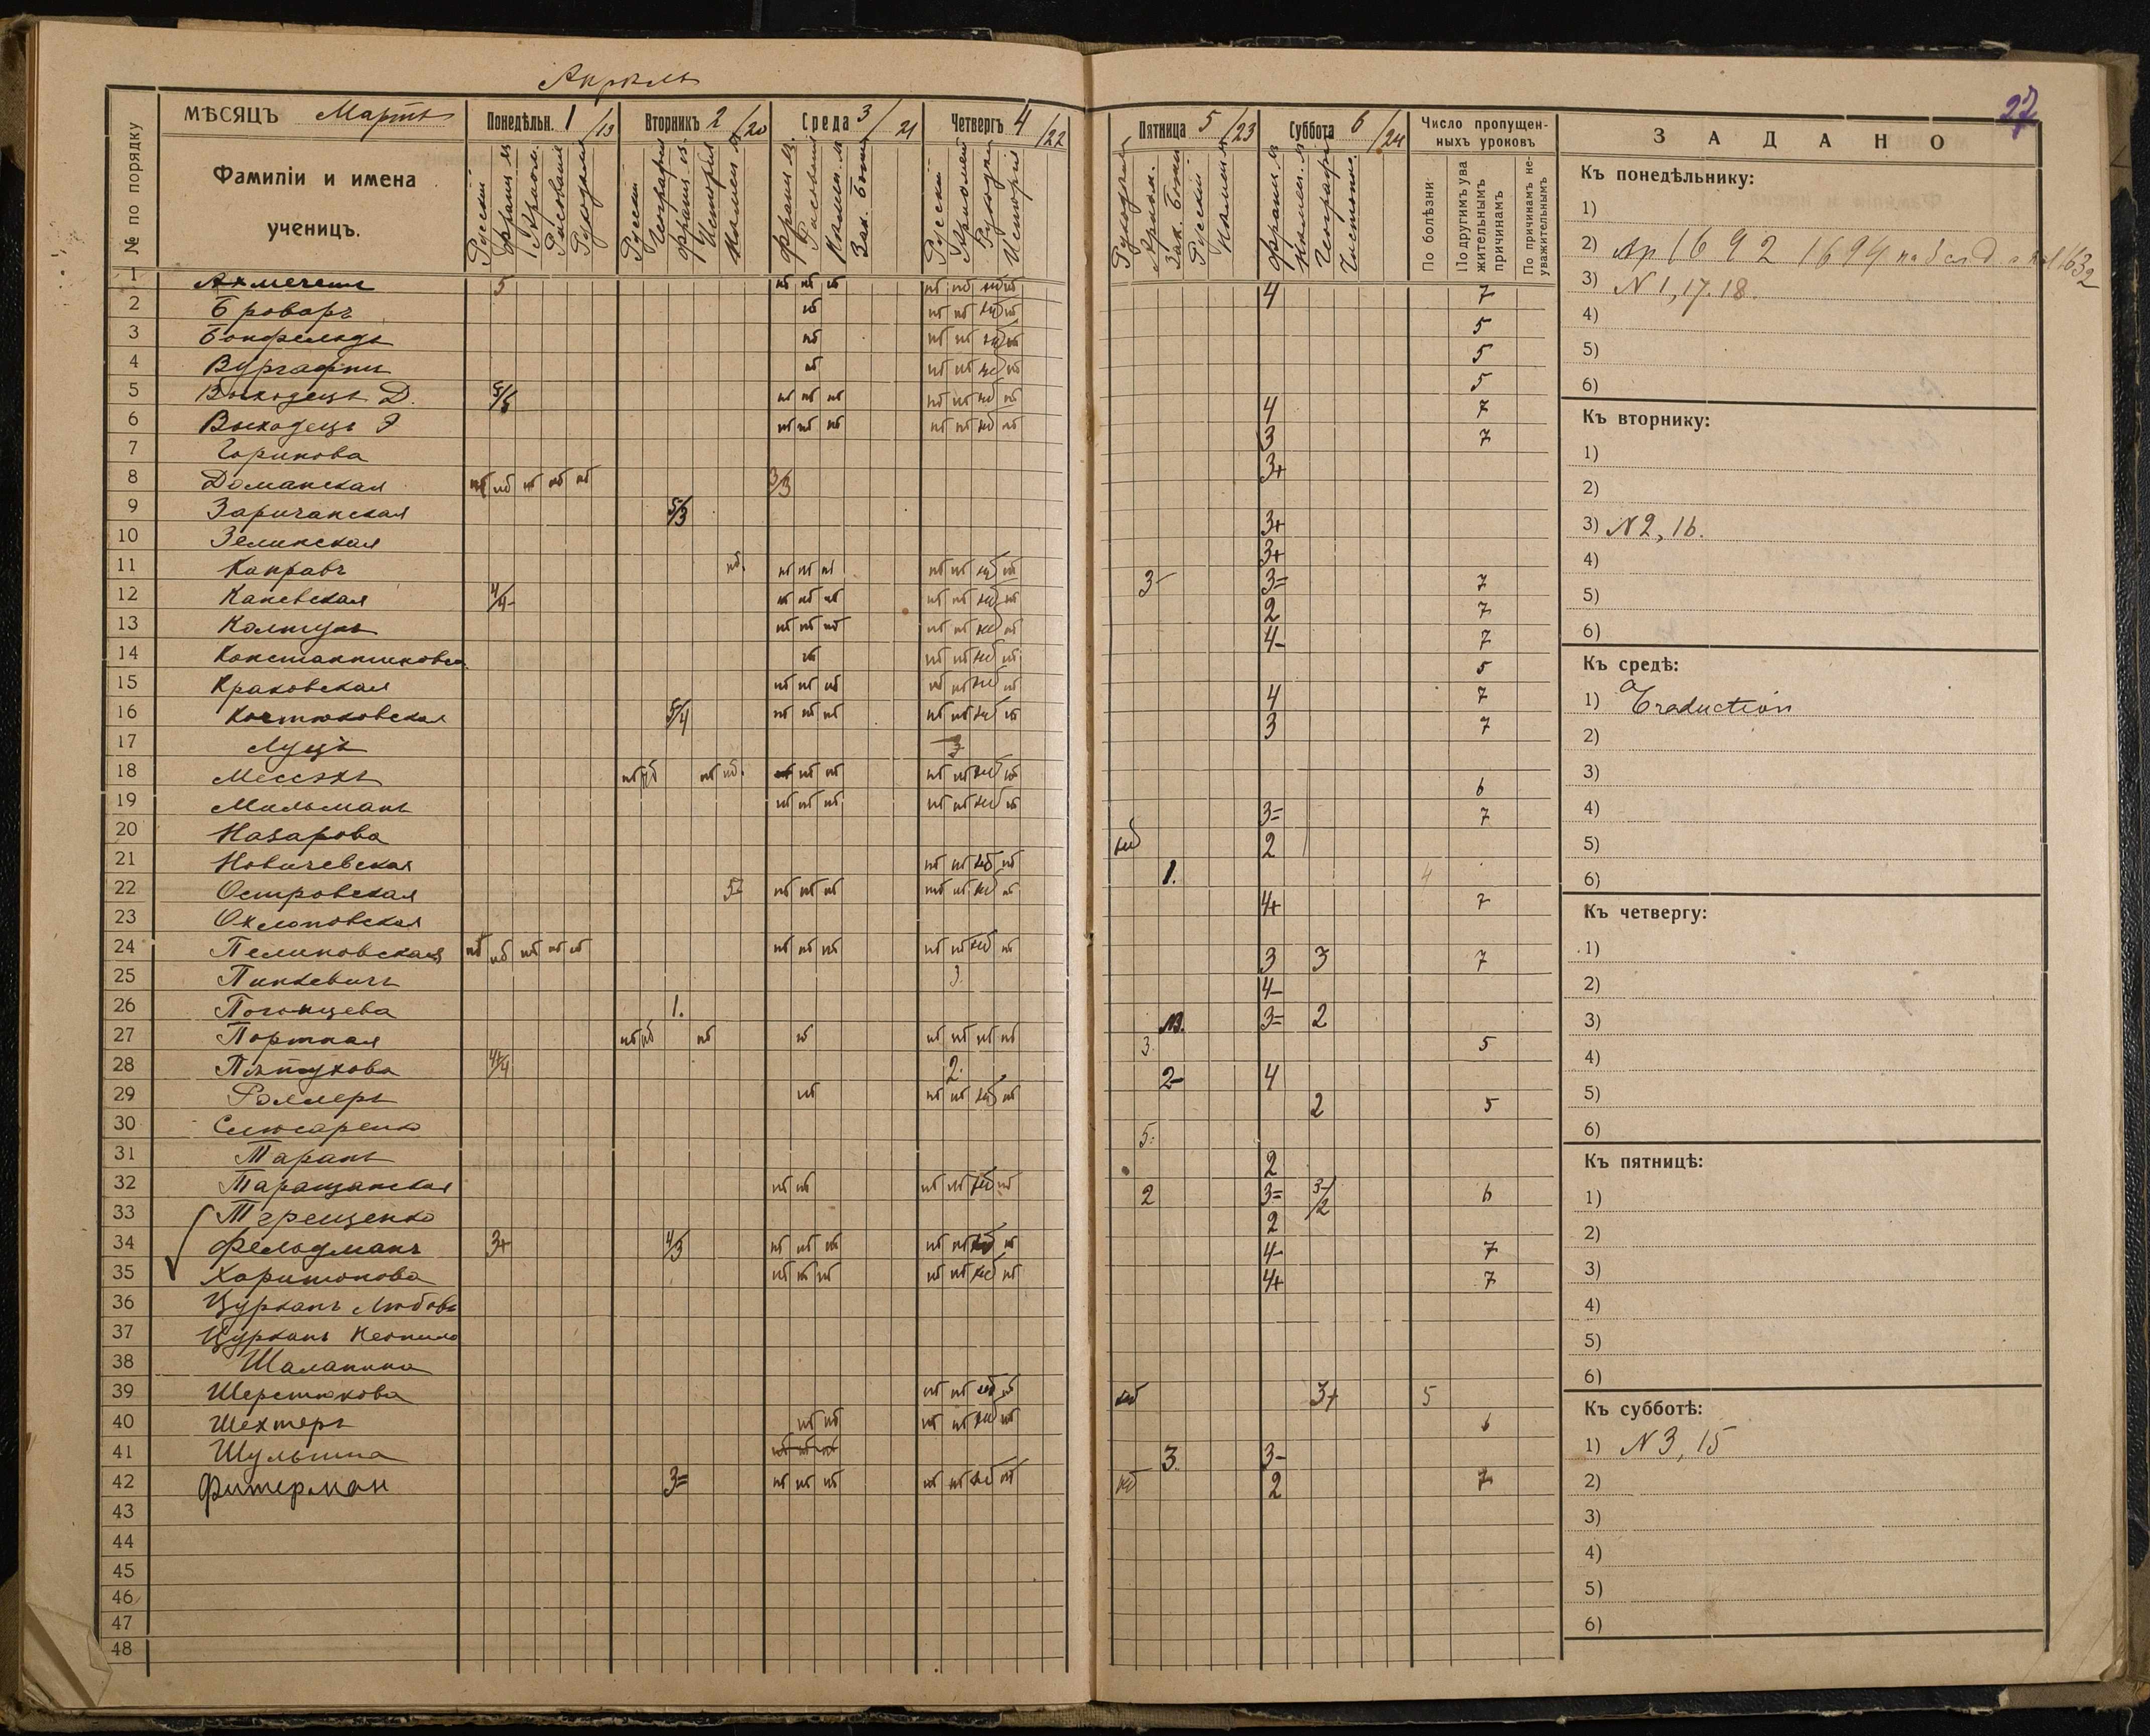 Апрѣль
27
№ по порядку
МѢСЯЦЪ Мартъ
Фамиліи и имена
ученицъ.
Понедѣльн. 1/19
Русскій
Франц. яз
Рисованіе
Рукодѣлье
Вторникъ 2/20
Русскій
Географія
Франц. яз.
Исторія
Нѣмец. яз
Среда 3/21
Франц. яз.
Рисованіе
Нѣмец. яз
Зак. Божій
Четвергъ 4/22
Русскій
Рукодѣл
Исторія
Пятница 5/23
Рукодѣліе
Зак. Божій
Русскій
Нѣмец. яз
Суббота 6/24
Франц. яз
Нѣмец. яз
Географія
Чистопис.
Число пропущен-
ныхъ уроковъ
По болѣзни
По другимъ ува
жительнымъ
причинамъ
По причинамъ не-
уважительнымъ
ЗАДАНО
1 Ахмечетъ 5 нб нб нб нб нб нб нб 4 7
2 Броваръ нб нб нб нб нб 5
3 Бонфельдъ нб нб нб нб нб 5
4 Вургафтъ нб нб нб нб нб 5
5 Выходецъ Д. 5/5 нб нб нб нб нб нб нб 4 7
6 Выходецъ Э нб нб нб нб нб нб нб 3 7
7 Горикова 3+
8 Доманская нб нб нб нб нб 3/3
9 Заричанская 5/3 3+
10 Зелинская 3+
11 Канравъ нб. нб нб нб нб нб нб нб 3- 3= 7
12 Каневская 4/4- нб нб нб нб нб нб нб 2 7
13 Колтунъ нб нб нб нб нб нб нб 4- 7
14 Константиновск нб нб нб нб нб 5
15 Краковская нб нб нб нб нб нб нб 4 7
16 Костюковская 5/4 нб нб нб нб нб нб нб 3 7
17 Луцъ 3
18 Мессэхъ нб нб нб нб. нб нб нб нб нб нб нб 6
19 Мильманъ нб нб нб нб нб нб нб 3= 7
20 Назарова нб 2
21 Новичевская нб нб нб нб 1. 4
22 Островская 5- нб нб нб нб нб нб нб 4+ 7
23 Околоповская
24 Пелиновская нб нб нб нб нб нб нб нб нб нб нб нб 3 3 7
25 Пинкевичъ 3. 4-
26 Погонцева 1. 3= 2
27 Портная нб нб нб нб нб нб нб нб 3. 5
28 Пѣтухова 4+/4 2. 2- 4
29 Роллеръ нб нб нб нб нб 2 5
30 Слюсаренко 5.
31 Таранъ 2
32 Таращанская нб нб нб нб нб нб 2 3= 3-/2 6
33 Терещенко 2
34 Фельдманъ 3+ 4/3 нб нб нб нб нб нб нб 4- 7
35 Харитонова нб нб нб нб нб нб нб 4+ 7
36 Цурканъ Любовь
37 Цурканъ Неонила
38 Шалапина
39 Шерстюкова нб нб нб нб нб 3+ 5
40 Шехтеръ нб нб нб нб нб нб 6
41 Шульгина нб нб нб 3. 3-
42 Фитерман 3= нб нб нб нб нб нб нб нб 2 7
43
44
45
46
47
48
Къ понедѣльнику:
1)
2) Ар 1692 1694
3) N 1, 17. 18.
4)
5)
6)
Къ вторнику:
1)
2)
3) N 2, 16.
4)
5)
6)
Къ средѣ:
1) Traduction
2)
3)
4)
5)
6)
Къ четвергу:
1)
2)
3)
4)
5)
6)
Къ пятницѣ:
1)
2)
3)
4)
5)
6)
Къ субботѣ:
1) N 3, 15
2)
3)
4)
5)
6)